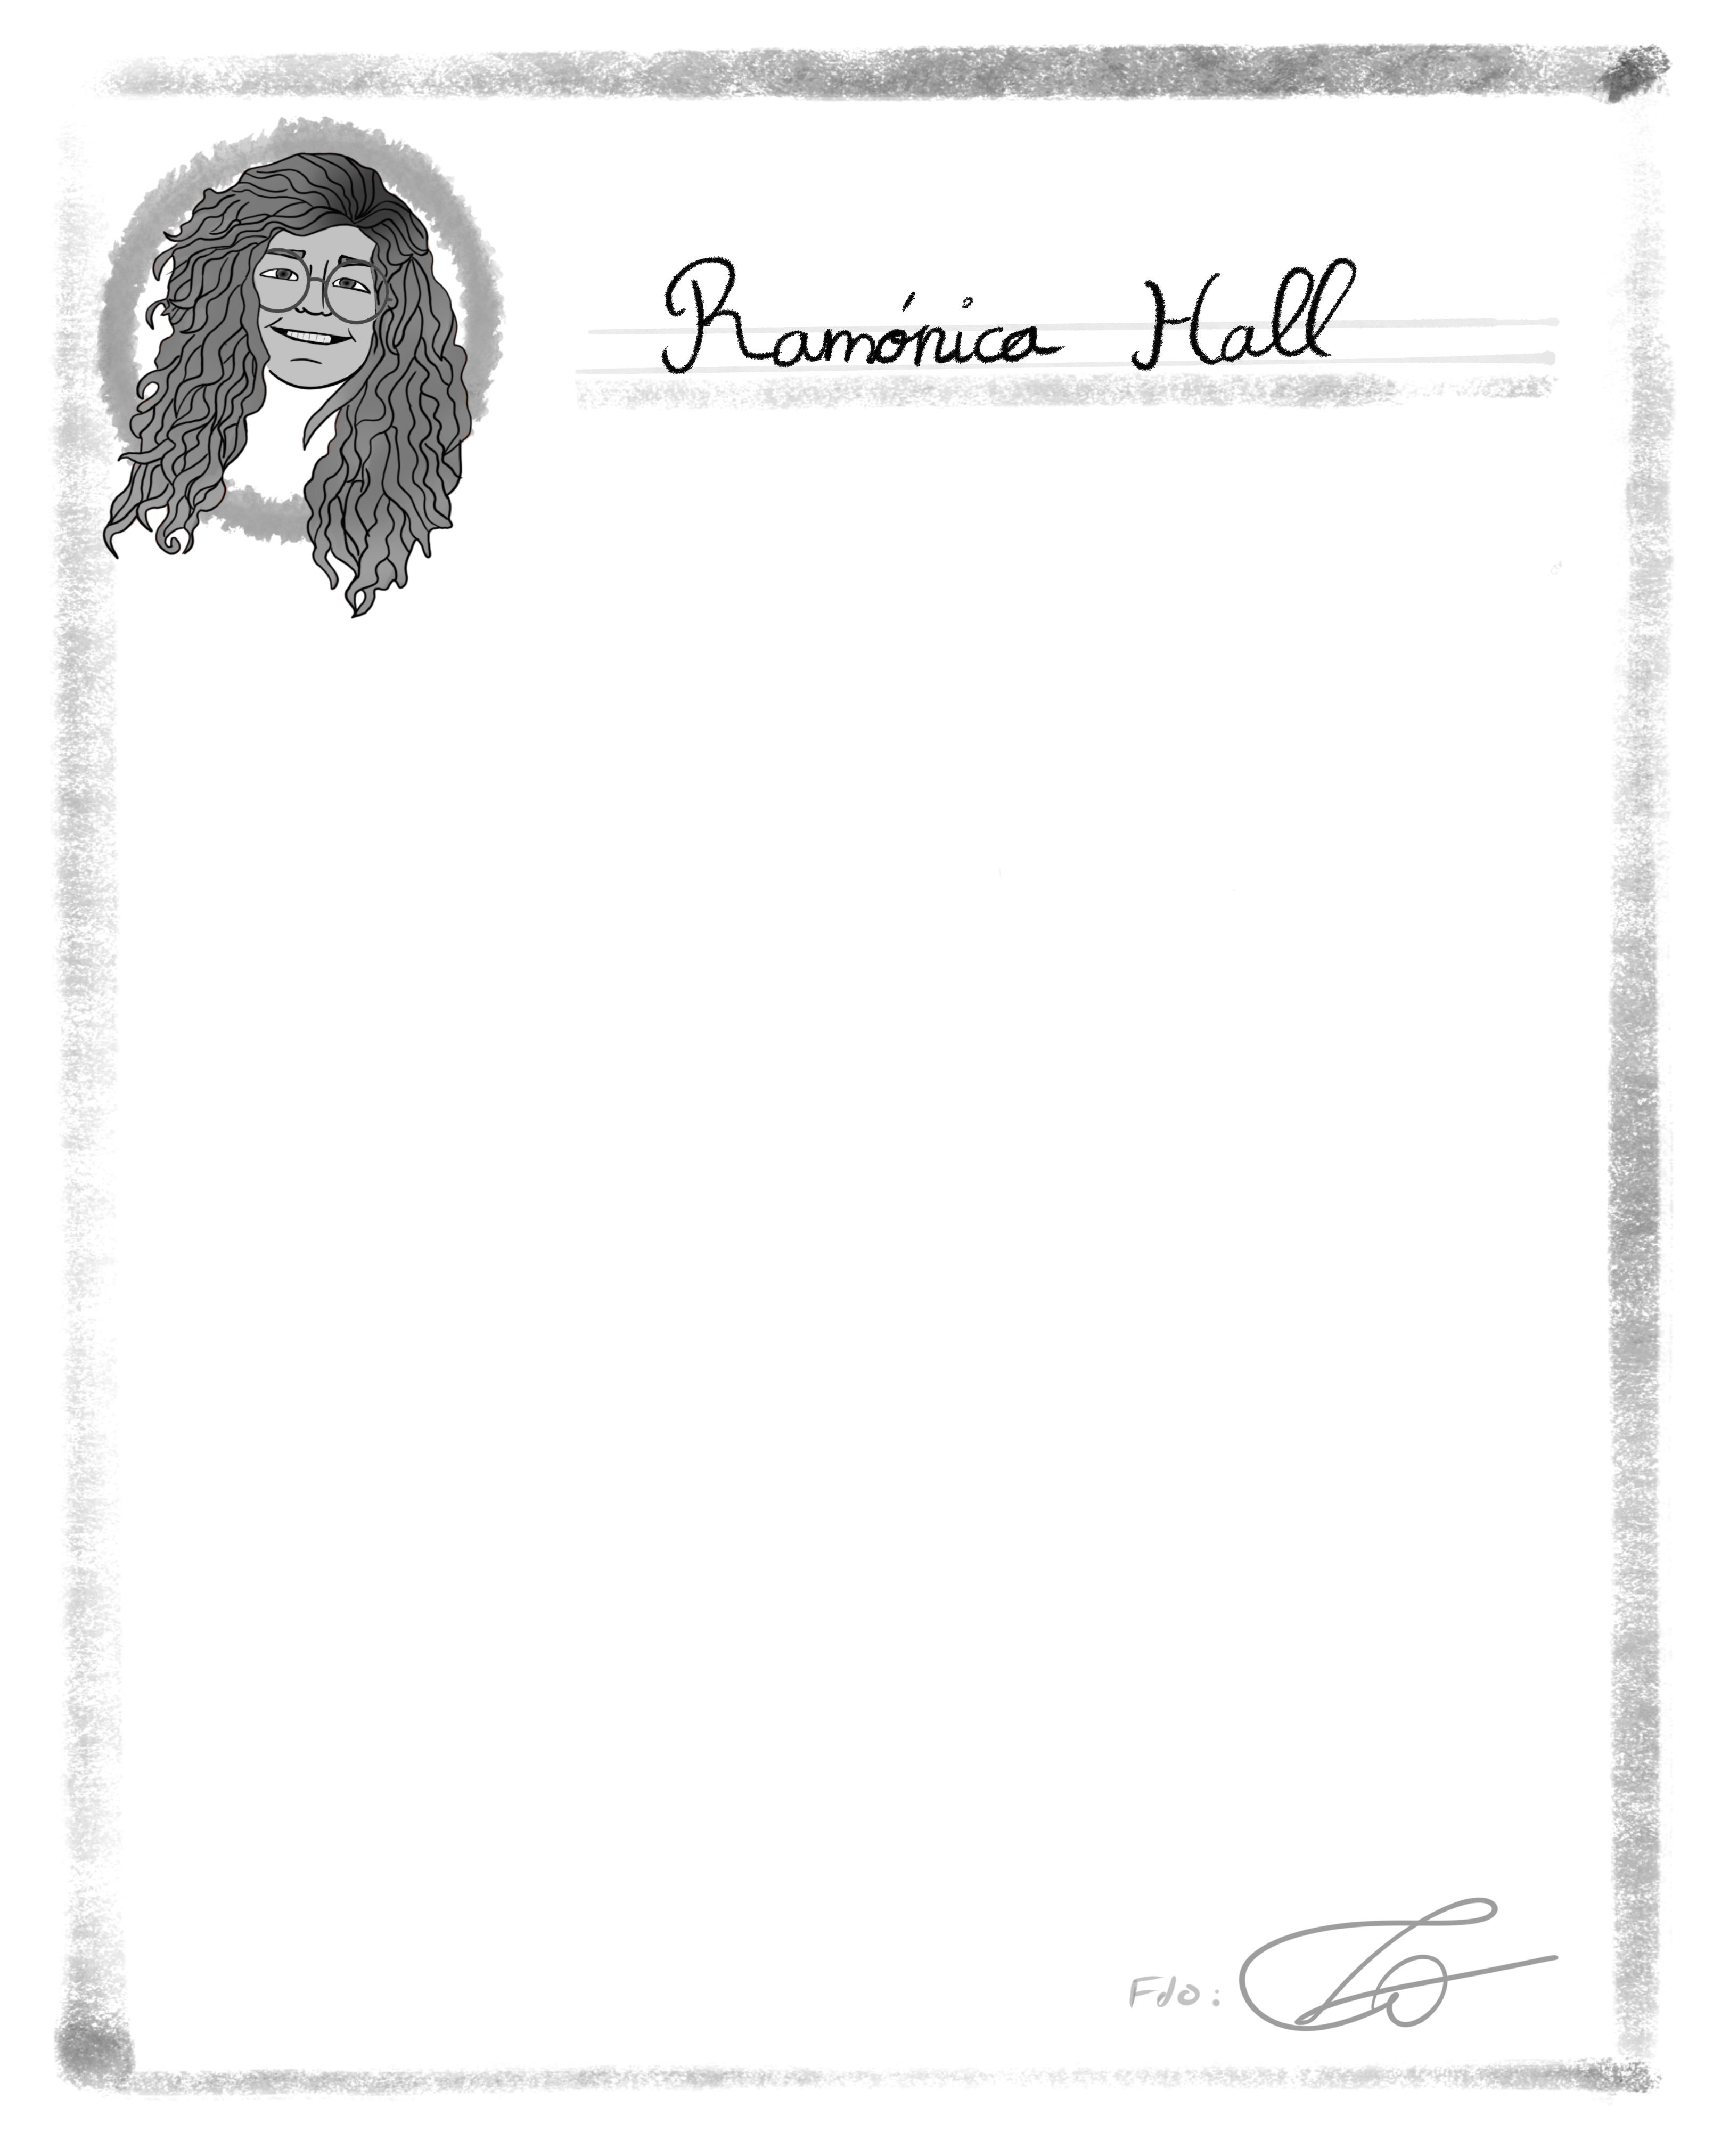 Ramónica Hall
Fdo: